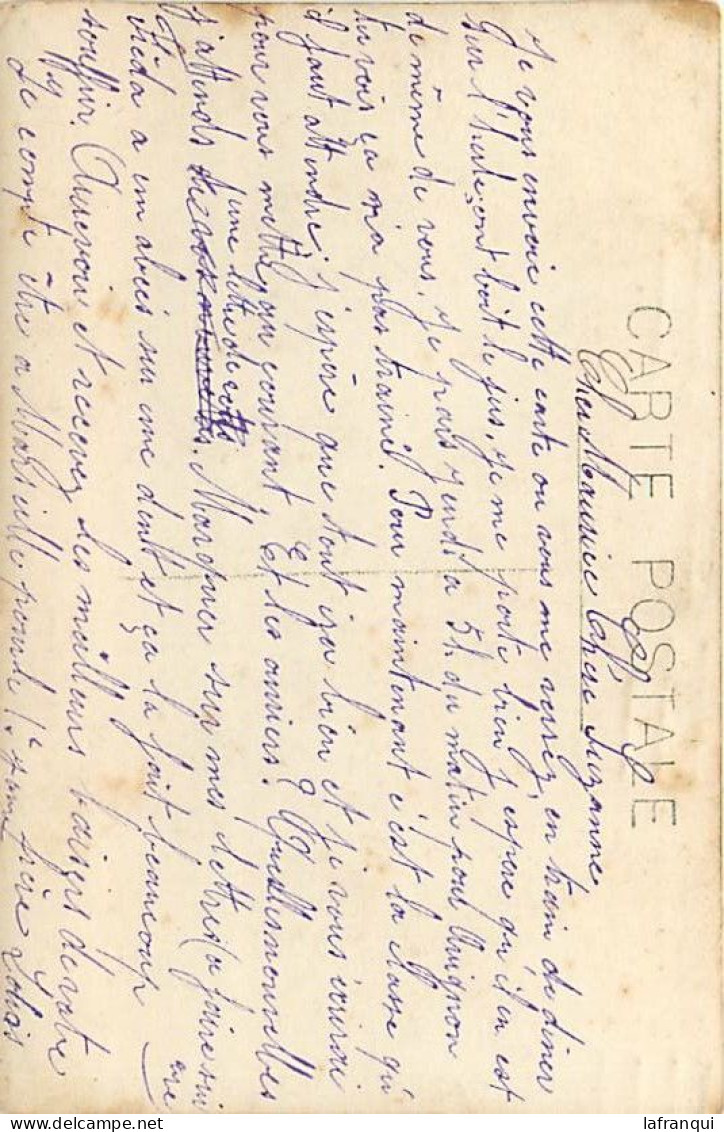 CARTE POSTALE
Cher Maurice Chère Suzanne
Je vous envoie cette carte ou vous me verrez, en train de diner
sur l'herbe, ont boit le jus, Je me porte bien j'espère qu'il en est
de même de vous, Je pars Jeudi a 5h. du matin pour Avignon
tu vois ça n'a pas trainé. Pour maintenant c'est la classe qu'
il faut attendre, j'espère que tout ira bien et je vous écrirai
pour vous mettre au courant Et les ouvriers? Quelles nouvelles
j'attends d'une lettre de Marquer sur mes lettres (a faire suivre
a em abcès sur une dent et ça la fait beaucoup
souffrir. Aurevoir et recevez les meilleurs baisers de votre
frère
Je compte être a Marseille pour le 1er
lafranqui